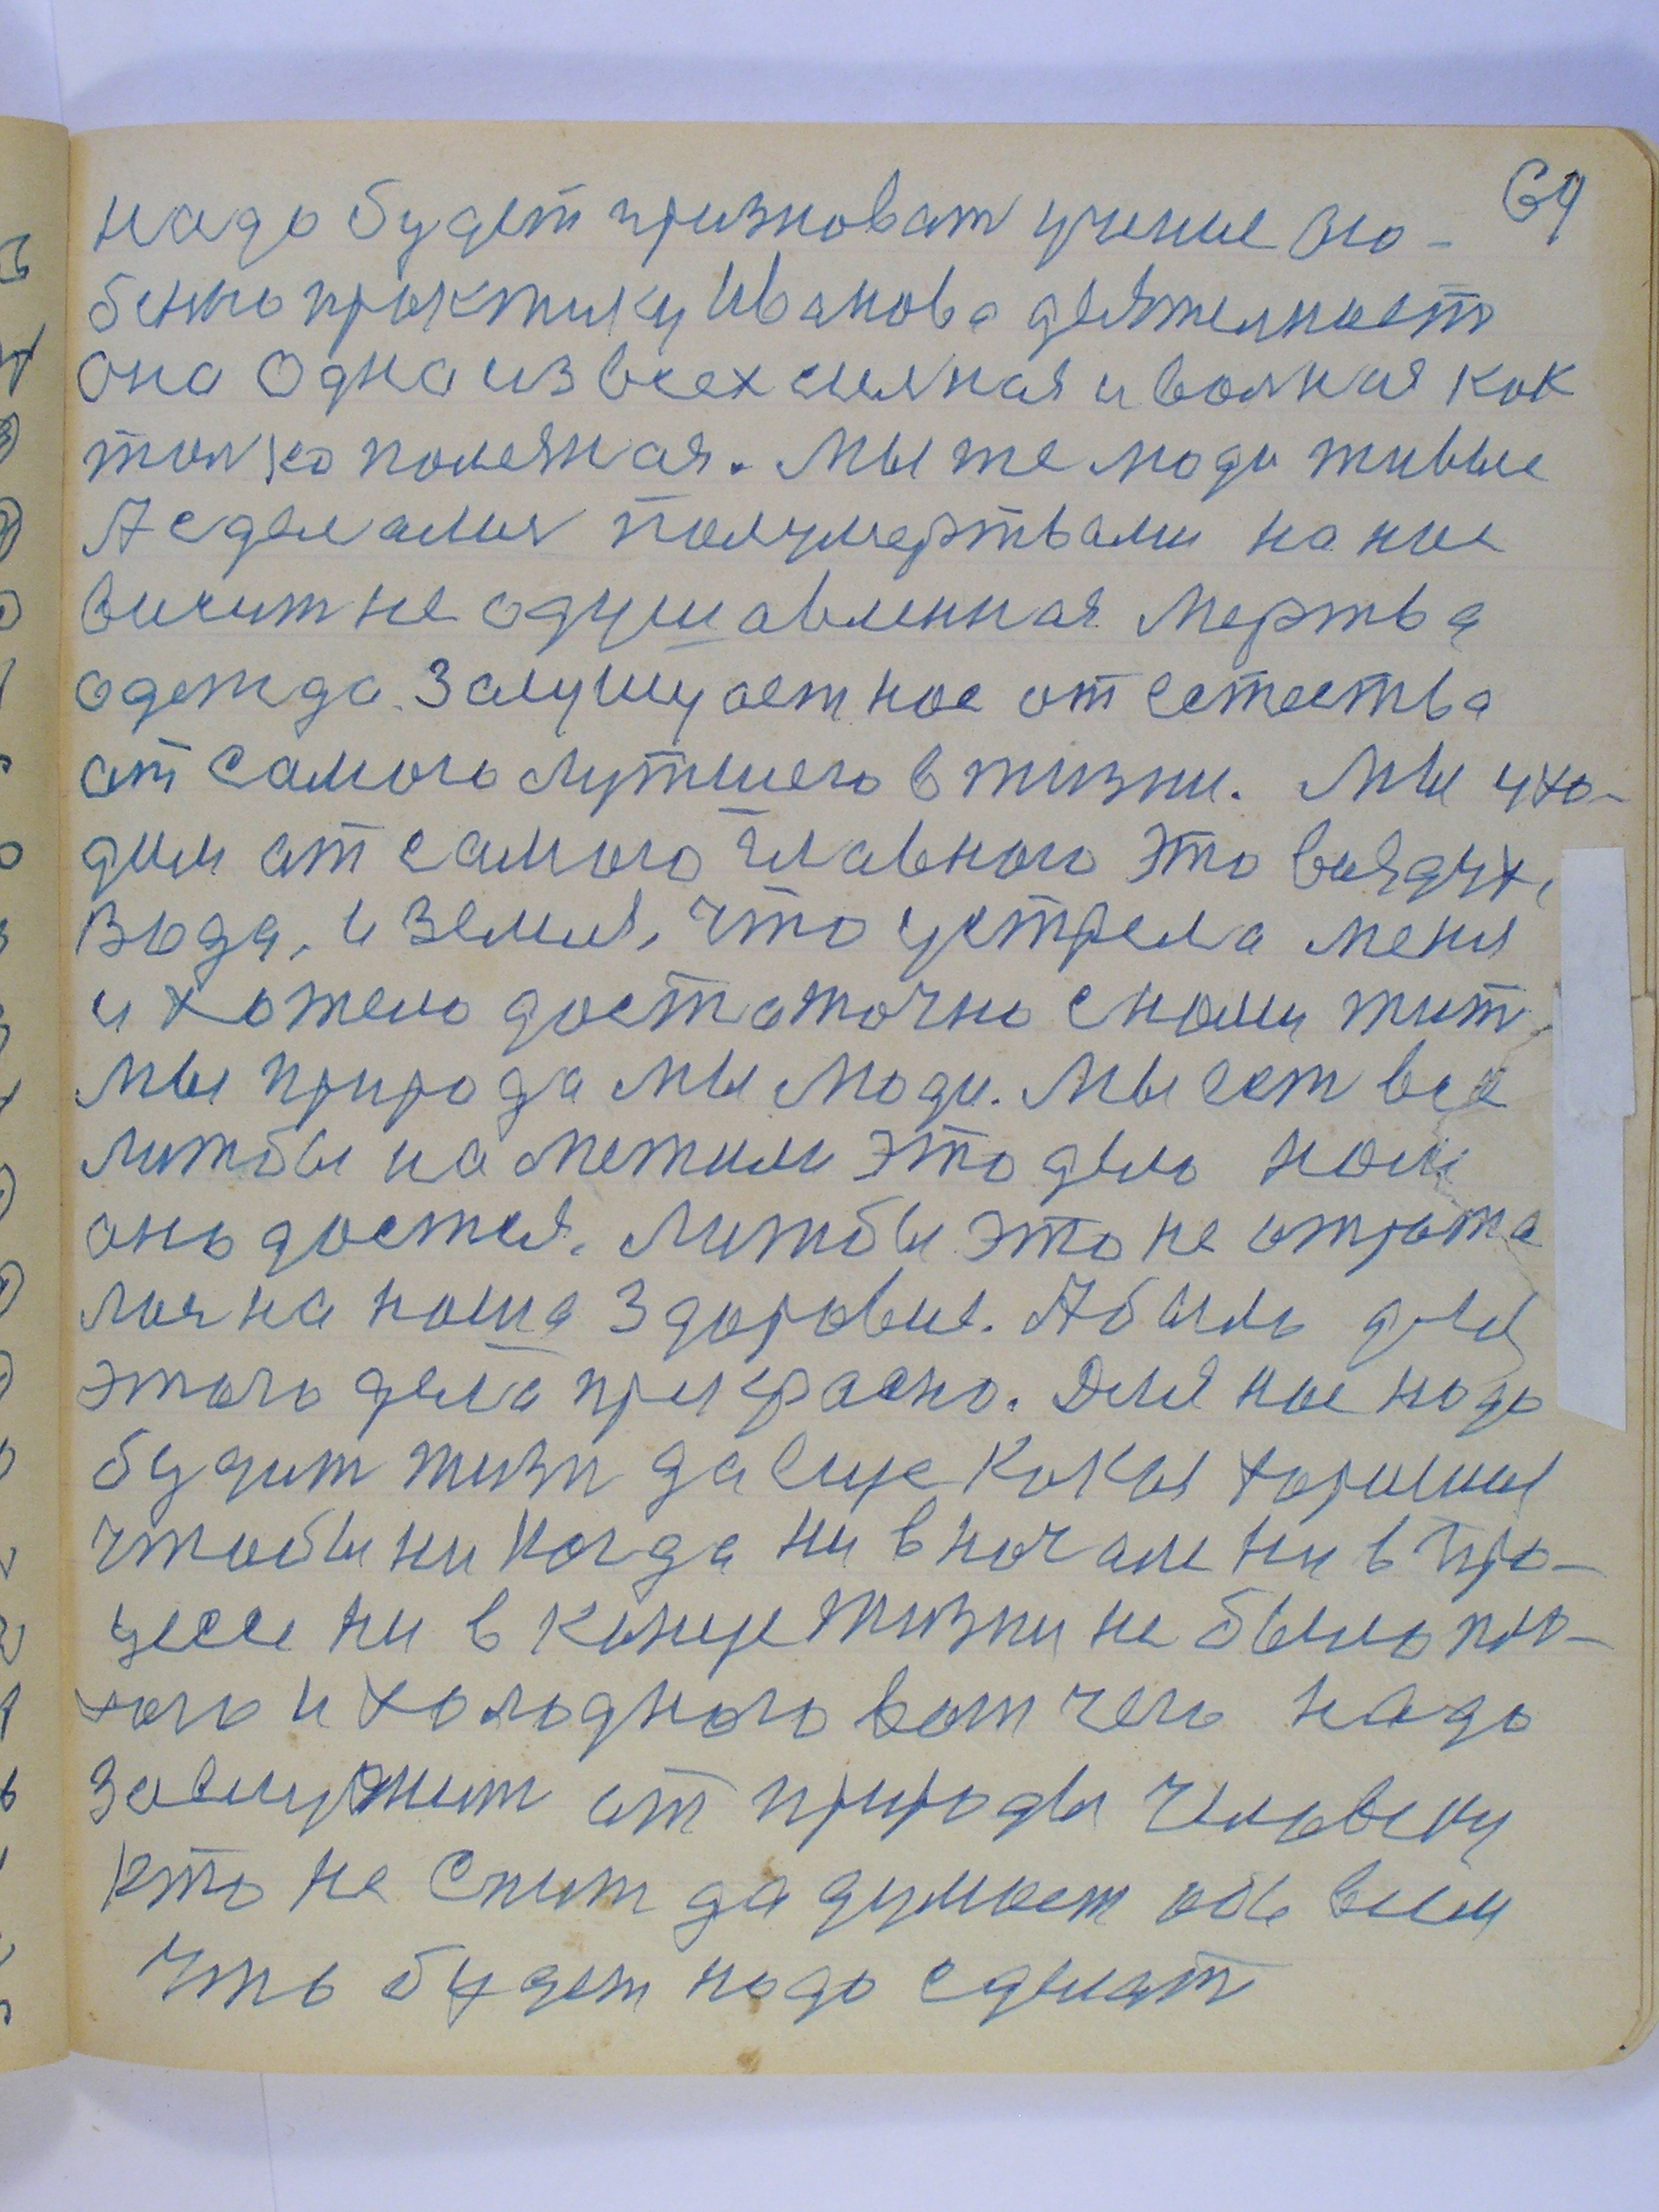 64
надо будет признават учение осо-
бенно практику Иванова деятелност
она одна из всех силная и волная как
толко полезная. Мы же люди живые
А сделалися полумертвами на нас
висит не одушавленная мертва
одежда. Защищает нас от естества
от самого лутшего в жизни. Мы ухо-
дим от самого главного это воздух,
вода, и земля, что устрела меня
и хотело достаточно с нами жит,
мы природа мы люди. Мы ест все
литбы наметили это дело нам
оно дастся. Литбы это не отрата
лося на наша здоровие. А было для
этого дела прекрасно. Для нас надо
будит жизн да еще какая хорошая
чтобы никогда ни в начале ни в про-
цессе ни в конце жизни не было пло-
хого и холодного вот чего надо
заслужит от природы человеку
кто не спит да думает обо всем
что будет надо сделат